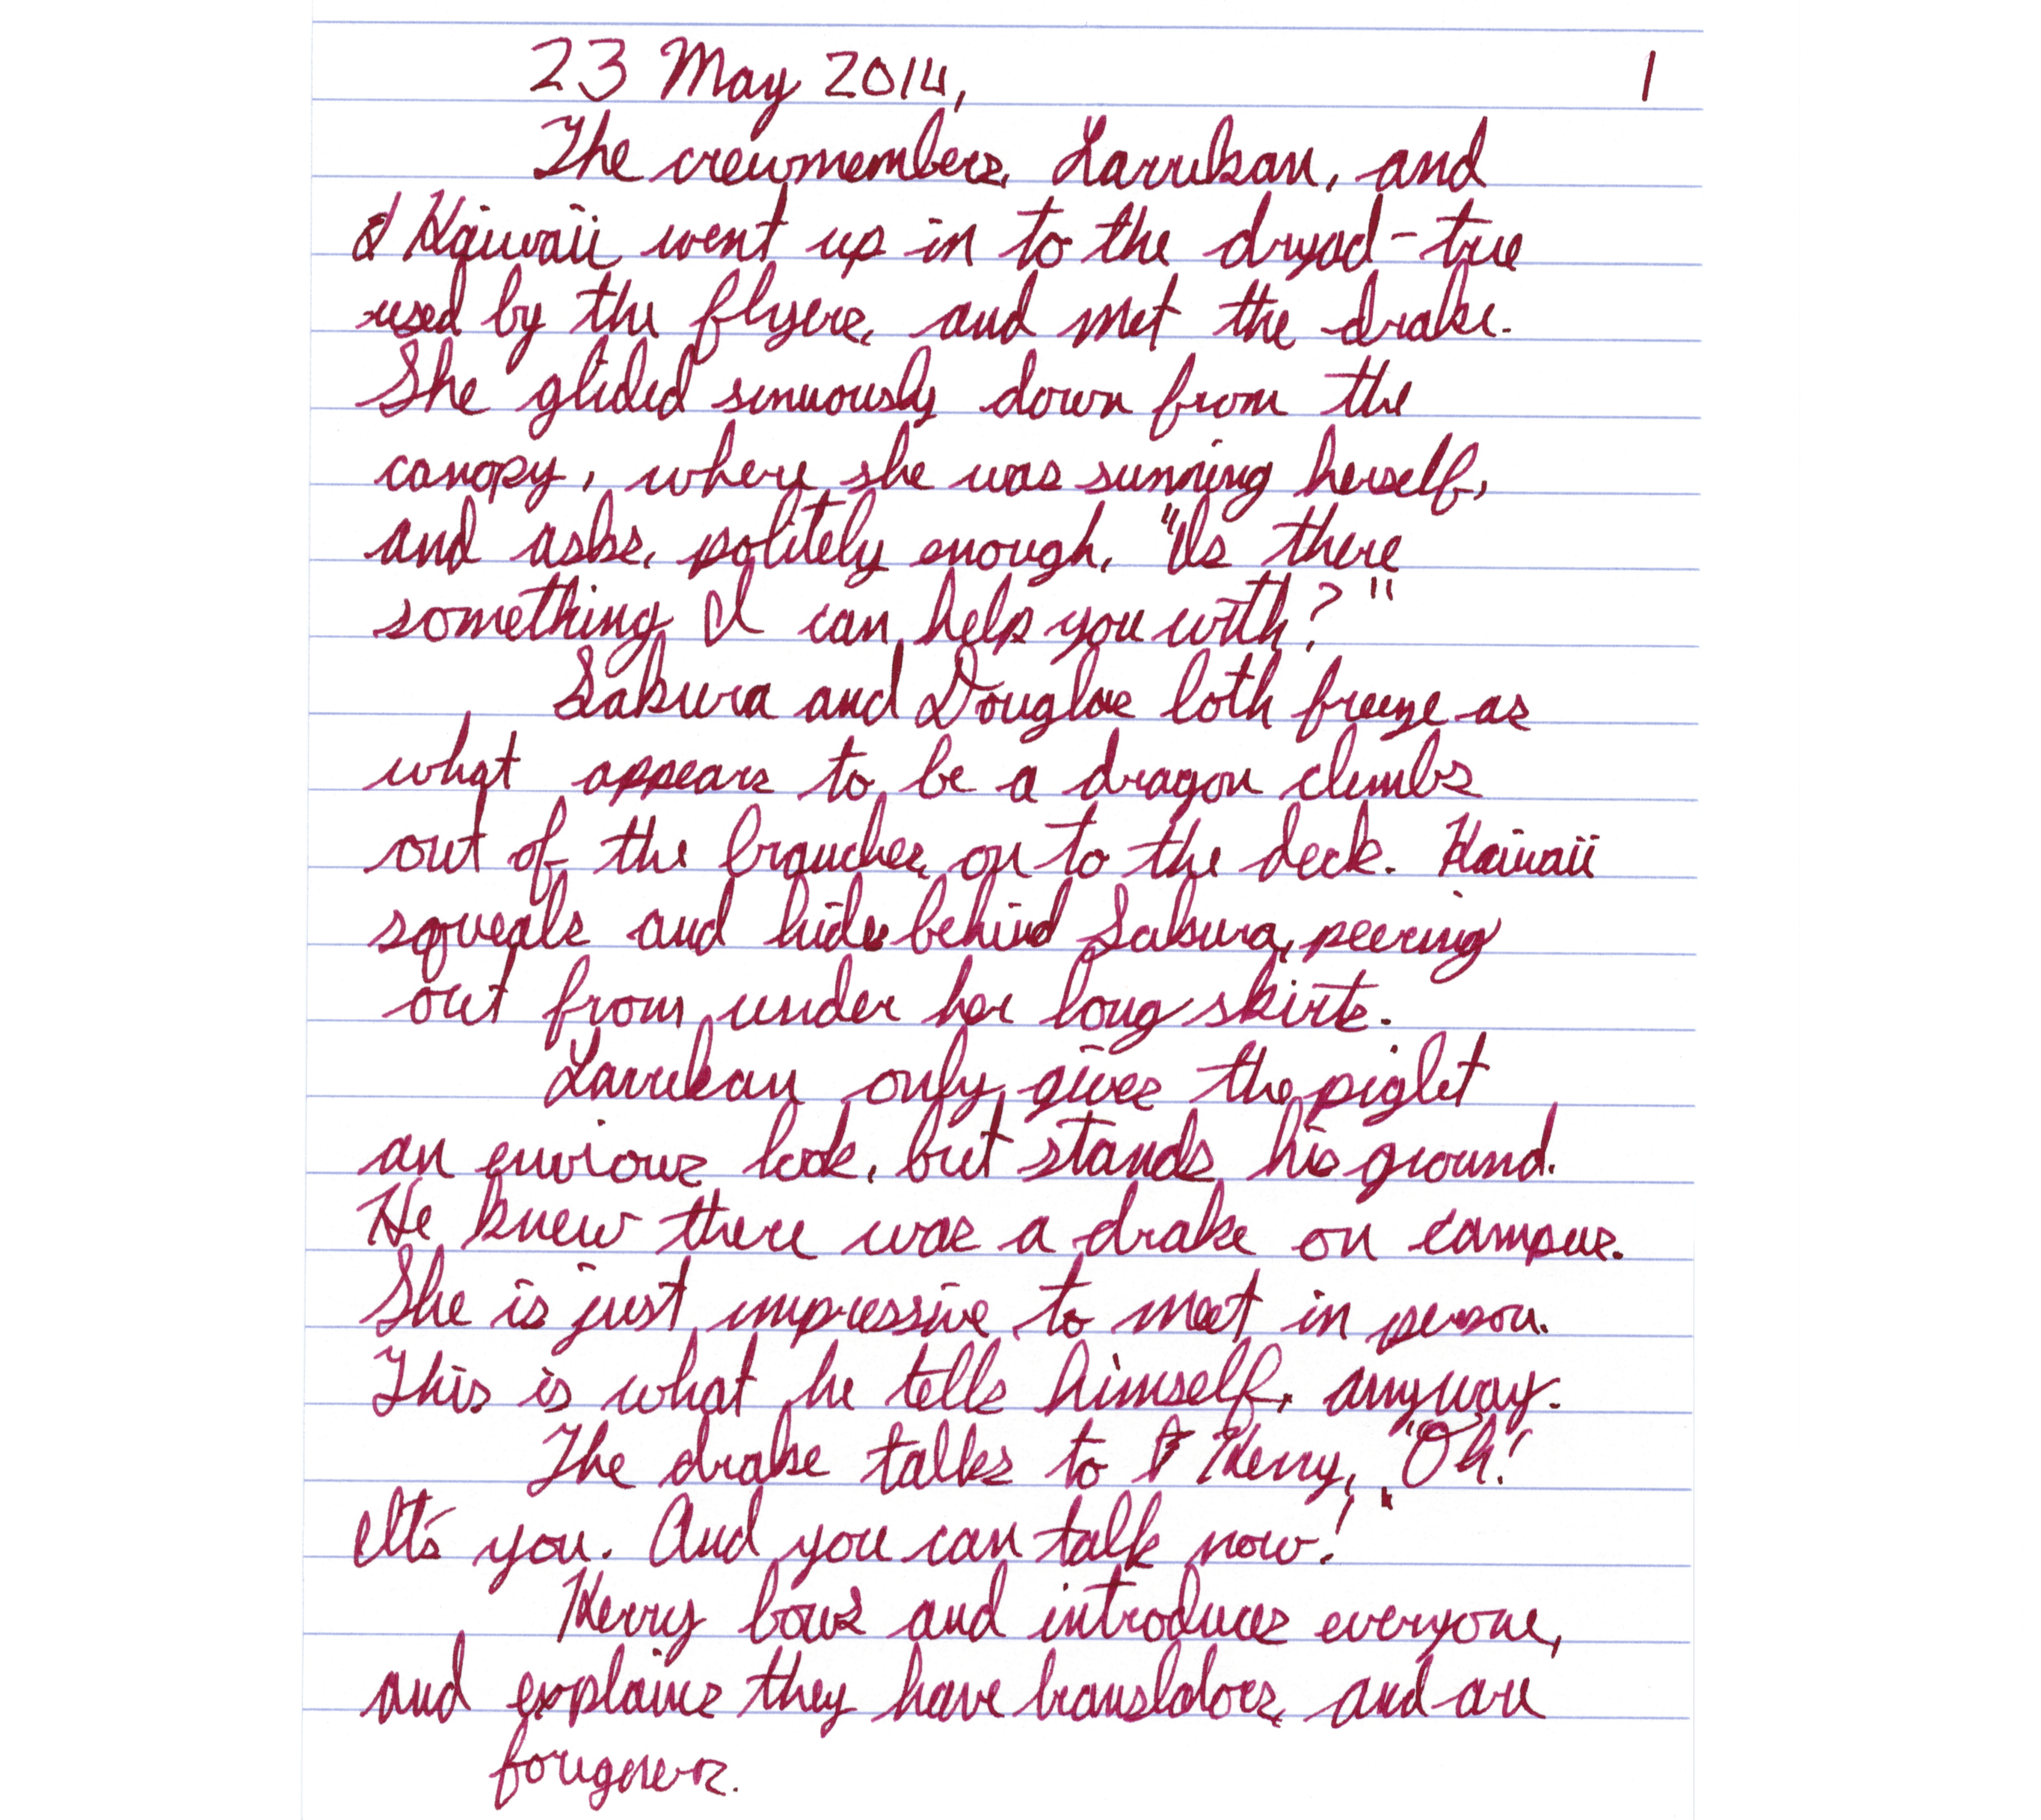 23 May 2014, 1
The crewmembers, Larrikan, and
& Kaiwaii went up in to the dryad-tree
used by the flyers, and met the drake.
She glided sinuously down from the
canopy, where she was sunning herself,
and asks, politely enough, "Is there
something I can help you with?"
Sakura and Douglas both freeze as
what appears to be a dragon climbs
out of the branches on to the deck. Kaiwaii
squeals and hides behind Sakura, peering
out from under her long skirts.
Larrikan only gives the piglet
an envious look, but stands his ground.
He knew there was a drake on campus.
She is just impressive to meet in person.
This is what he tells himself, anyway.
The drake talks to Kerry, "Oh!
It's you. And you can talk now!"
Kerry bows and introduces everyone,
and explains they have translators, and are
foreigners.